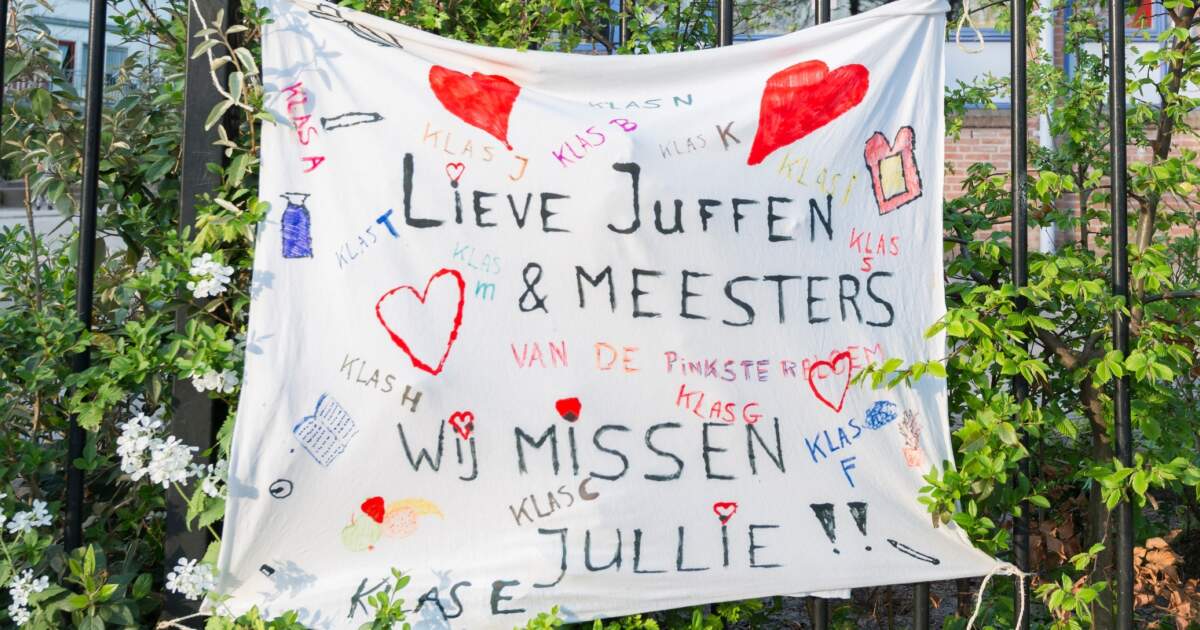 KLAS N
KLAS A
KLAS J
KLAS B
KLAS K
KLAS I
LIEVE JUFFEN
KLAS T
KLAS
m
KLAS
S
& MEESTERS
VAN DE PINKSTER
KLAS H
KLAS G
WIJ MISSEN
KLAS
F
KLAS C
JULLIE !!
KLAS E